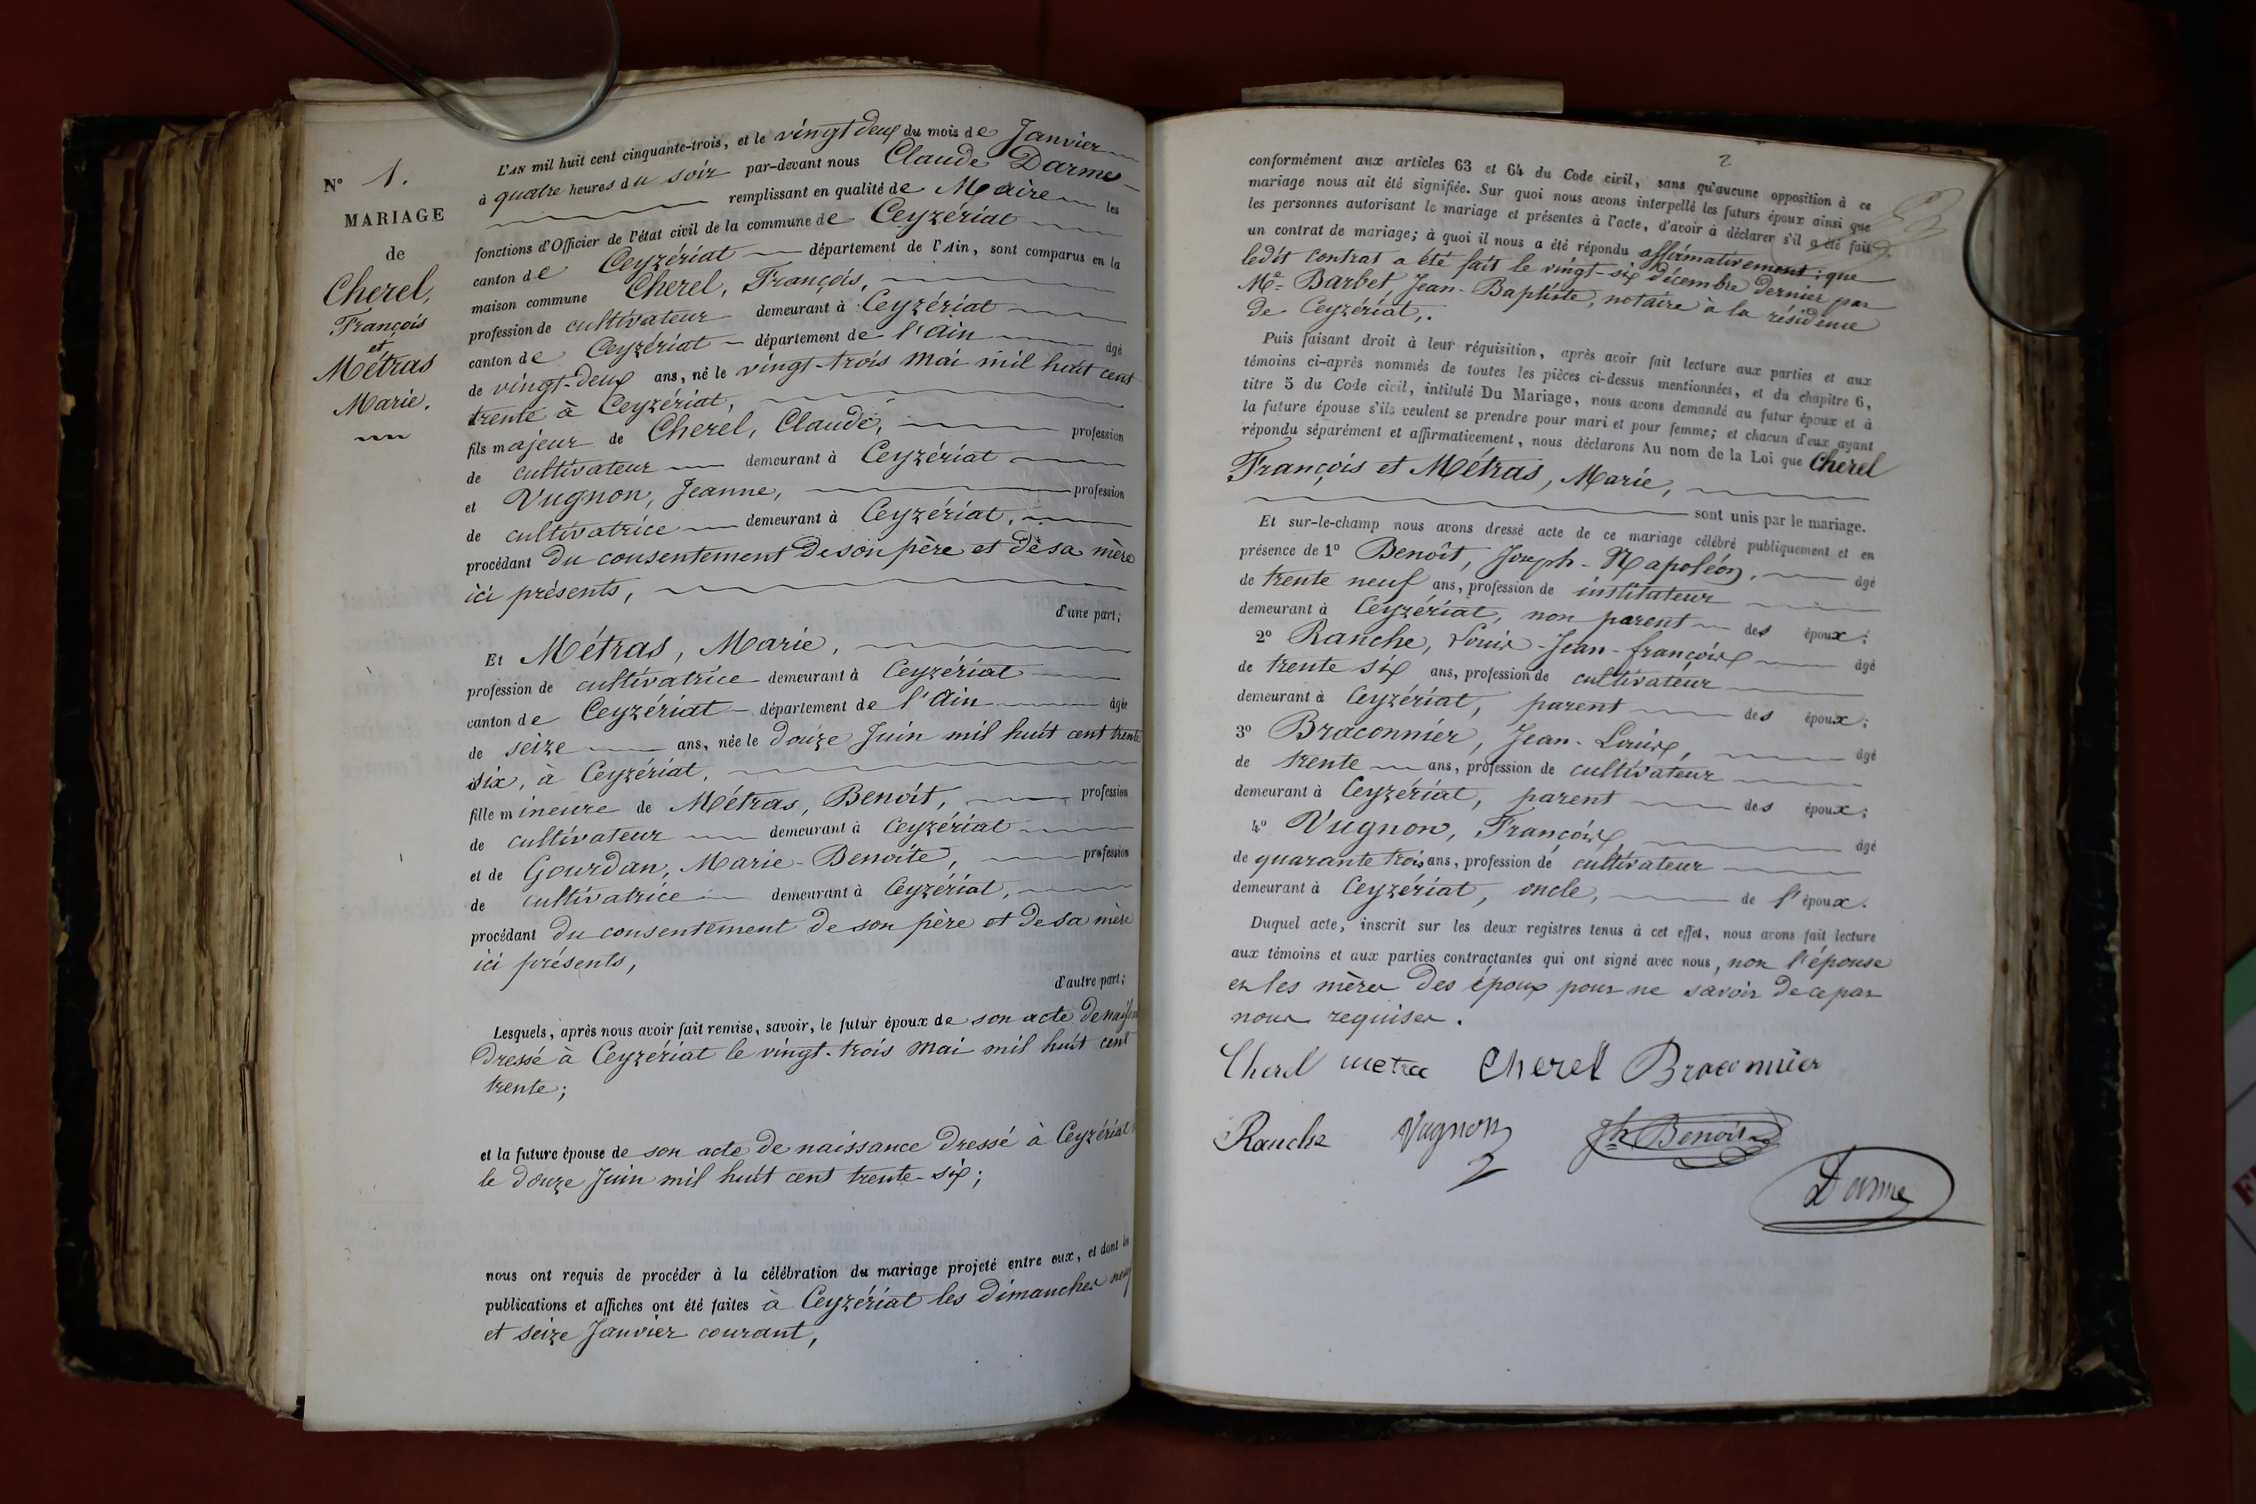 N° 1.
MARIAGE
de
Cherel,
François
et
Métras
Marie.
L'AN mil huit cent cinquante-trois, et le vingt deux du mois de Janvier
à quatre heures du soir par-devant nous Claude Darme
remplissant en qualité de Maire les
fonctions d'Officier de l'état civil de la commune de Ceyzériat
canton de Ceyzériat département de l'Ain, sont comparus en la
maison commune Cherel, François,
profession de cultivateur demeurant à Ceyzériat
canton de Ceyzériat département de l'Ain âgé
de vingt-deux ans, né le vingt-trois Mai mil huit cent
trente à Ceyzériat,
fils majeur de Cherel, Claude, profession
de cultivateur demeurant à Ceyzériat
et Vugnon, Jeanne, profession
de cultivatrice demeurant à Ceyzériat,
procédant du consentement de son père et de sa mère
ici présents,
d'une part;
Et Métras, Marie,
profession de cultivatrice demeurant à Ceyzériat
canton de Ceyzériat département de l'Ain âgée
de seize ans, née le douze Juin mil huit cent trente
six, à Ceyzériat,
fille mineure de Métras, Benoît, profession
de cultivateur demeurant à Ceyzériat
et de Gourdan, Marie-Benoîte, profession
de cultivatrice demeurant à Ceyzériat,
procédant du consentement de son père et de sa mère
ici présents,
d'autre part;
Lesquels, après nous avoir fait remise, savoir, le futur époux de son acte de
dressé à Ceyzériat le vingt-trois Mai mil huit cent
trente;
et la future épouse de son acte de naissance dressé à Ceyzériat
le douze Juin mil huit cent trente-six;
nous ont requis de procéder à la célébration du mariage projeté entre eux, et dont les
publications et affiches ont été faites à Ceyzériat les dimanches neuf
et seize Janvier courant,
2
conformément aux articles 63 et 64 du Code civil, sans qu'aucune opposition à ce
mariage nous ait été signifiée. Sur quoi nous avons interpellé les futurs époux ainsi que
les personnes autorisant le mariage et présentes à l'acte, d'avoir à déclarer s'il a été fait
un contrat de mariage; à quoi il nous a été répondu affirmativement: que
ledit contrat a été fait le vingt-six décembre dernier par
Me Barbet, Jean-Baptiste, notaire à la résidence
de Ceyzériat,.
Puis faisant droit à leur réquisition, après avoir fait lecture aux parties et aux
témoins ci-après nommés de toutes les pièces ci-dessus mentionnées, et du chapitre 6,
titre 5 du Code civil, intitulé Du Mariage, nous avons demandé au futur époux et à
la future épouse s'ils veulent se prendre pour mari et pour femme; et chacun d'eux ayant
répondu séparément et affirmativement, nous déclarons Au nom de la Loi que Cherel
François et Métras, Marie,
sont unis par le mariage.
Et sur-le-champ nous avons dressé acte de ce mariage célébré publiquement et en
présence de 1° Benoît, Joseph-Napoléon, âgé
de trente neuf ans, profession de instituteur
demeurant à Ceyzériat, non parent des époux;
2° Ranche, Louis-Jean-françois âgé
de trente six ans, profession de cultivateur
demeurant à Ceyzériat, parent des époux;
3° Braconnier, Jean-Louis, âgé
de trente ans, profession de cultivateur
demeurant à Ceyzériat, parent des époux;
4° Vugnon, François âgé
de quarante trois ans, profession de cultivateur
demeurant à Ceyzériat, oncle, de l'époux.
Duquel acte, inscrit sur les deux registres tenus à cet effet, nous avons fait lecture
aux témoins et aux parties contractantes qui ont signé avec nous, non l'épouse
et les mères des époux pour ne savoir de ce par
nous requises.
Cherel metra Cherel Braconnier
Ranche Vugnon Jh Benoit
Darme